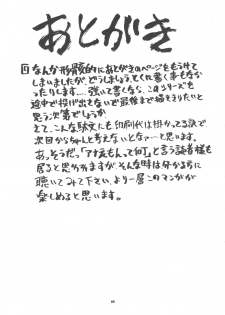 あとがき
回なんか形骸的にあとがきのページをもうけて
しまいましたがどうしましょうとくに書く事もなか
ったりします…。強いて書くなら、このシリーズを
途中で投げ出さないで最後まで描きりたいと
思う次第でしょうか
さて、こんな駄文にも印刷代は掛かってる訳で
次回からちゃんと考えないとなァ…と思います。
あっそうだっ「アナえもんって何」と言う読者様も
居ると思いますが、そんな時は分かる方に
聴いてみて下さい、より一層このマンガが
楽しめると思います。